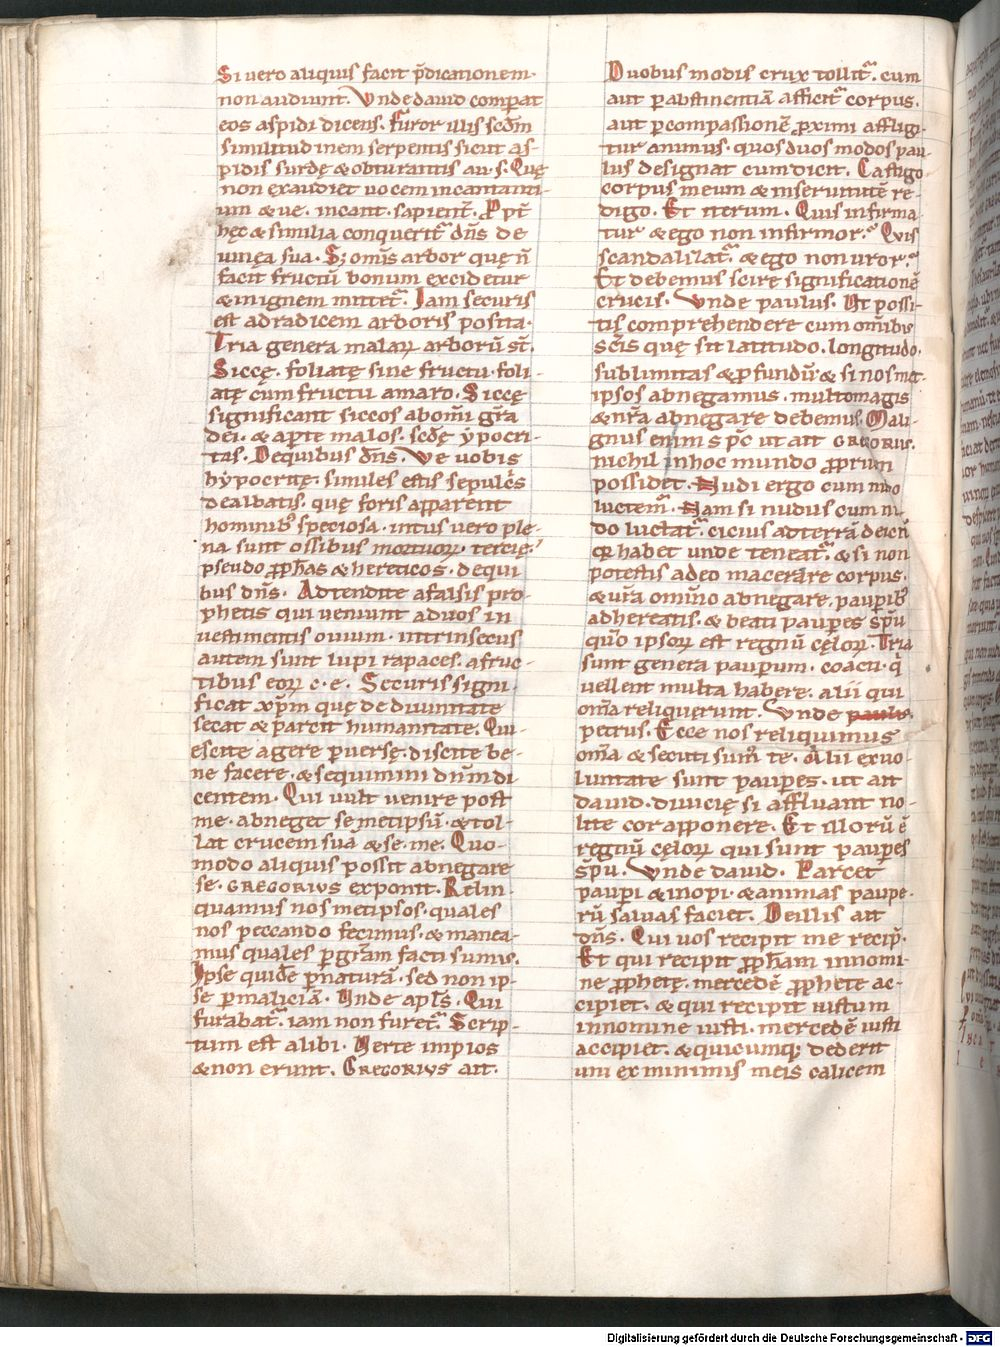 Si uero aliquis facit p̄dicationem.
non audiunt. Vnde dauid comparat
eos aspidi dicens. Furor illis scdm̄
similitudinem serpentis sicut as-
pidis surdę & obturantis au.s. Quę
non exaudiet uocem incantanti-
um & ue. incant. sapient̄. Ppt̄
hęc & similia conquerit᷑ dn̄s de
uinea sua. Sꝫ omīs arbor quę n̄
facit fructū bonum excidetur
& in ignem mittet᷑. Iam securis
est ad radicem arboris posita.
Tria genera malaꝝ arborū st̄.
Siccę. foliatę sine fructu. foli-
atę cum fructu amaro. Siccę
significant siccos ab om̄i gr̄a
dei. & aꝑte malos. scdę ypocri-
tas. De quibus dn̄s. Ve uobis
hypocritę. similes estis sepulc̄s
dealbatis. quę foris apparent
hominibꝰ speciosa. intus uero ple-
na sunt ossibus mortuoꝝ. tercię
pseudo ꝓph̄as & hereticos. de qui
bus dn̄s. Adtendite a falsis pro-
phetis qui ueniunt ad uos in
uestimentis ouium. intrinsecus
autem sunt lupi rapaces. a fruc-
tibus eoꝝ c. e. Securis signi-
ficat xp̄m quę de diuinitate
secat & parcit humanitate. Qui
escite agere ꝑuerse. discite be-
ne facere. & sequimini dn̄m di
centem. Qui uult uenire post
me. abneget semetipsū. & tol-
lat crucem suā & se. me. Quo-
modo aliquis possit abnegare
se. GREGORIVS exponit. Relin-
quamus nosmetipsos. quales
nos peccando fecimus. & manea-
mus quales ꝑ gr̄am facti sumus.
Ipse quidē ꝑ naturā. sed non ip-
se ꝑ maliciā. Vnde apl̄s. Qui
furabat᷑. iam non furet᷑. Scrip-
tum est alibi. Verte impios
& non erunt. GREGORIVS ait.
Duobus modis crux tollit᷑. cum
aut ꝑ abstinentiā afficit᷑ corpus.
aut ꝑ compassionē ꝓximi affligi-
tur animus. quos duos modos pau-
lus designat cum dicit. Castigo
corpus meum & in seruitutē re-
digo. Et iterum. Quis infirma
tur & ego non infirmor. Quis
scandalizat᷑. & ego non uror.
Et debemus scire significationē
crucis. Vnde paulus. Vt possi-
tis comprehendere cum om̄ibꝰ
sc̄is quę sit latitudo. longitudo.
sublimitas & ꝓfundū. & si nosmet-
ipsos abnegamus. multo magis
& nr̄a abnegare debemus. Mali-
gnus enim sp̄c ut ait GREGORIVS.
nichil in hoc mundo proprium
possidet. Nudi ergo cum nudo
luctem᷑. Nam si nudus cum nu-
do luctat᷑. cicius ad terrā deicit᷑
qꝛ habet unde teneat᷑. & si non
potestis adeo macerare corpus.
& ur̄a omnino abnegare. pauꝑibꝰ
adhereatis. & beati pauperes sp̄u
qūo ipsoꝝ est regnū cęloꝝ. Tria
sunt genera pauꝑum. coacti. q̇
uellent multa habere. alii qui
om̄a reliquerunt. Vnde paulus
petrus. Ecce nos reliquimus
om̄a & secuti sum᷑ te. Alii ex uo-
luntate sunt pauꝑes. ut ait
dauid. diuicię si affluant no-
lite cor apponere. Et illorū ē
regnū cęloꝝ qui sunt pauꝑes
sp̄u. Vnde dauid. Parcet
pauꝑi & inopi. & animas paupe-
rū saluas faciet. De illis ait
dn̄s. Qui uos recipit me recip̄.
Et qui recipit ꝓph̄am in nomi-
ne ꝓphetę. mercedē ꝓphete ac-
cipiet. & qui recipit iustum
in nomine iusti. mercedē iusti
accipiet. & quicumqꝫ dederit
uni ex minimis meis calicem
Digitalisierung gefördert durch die Deutsche Forschungsgemeinschaft - DFG